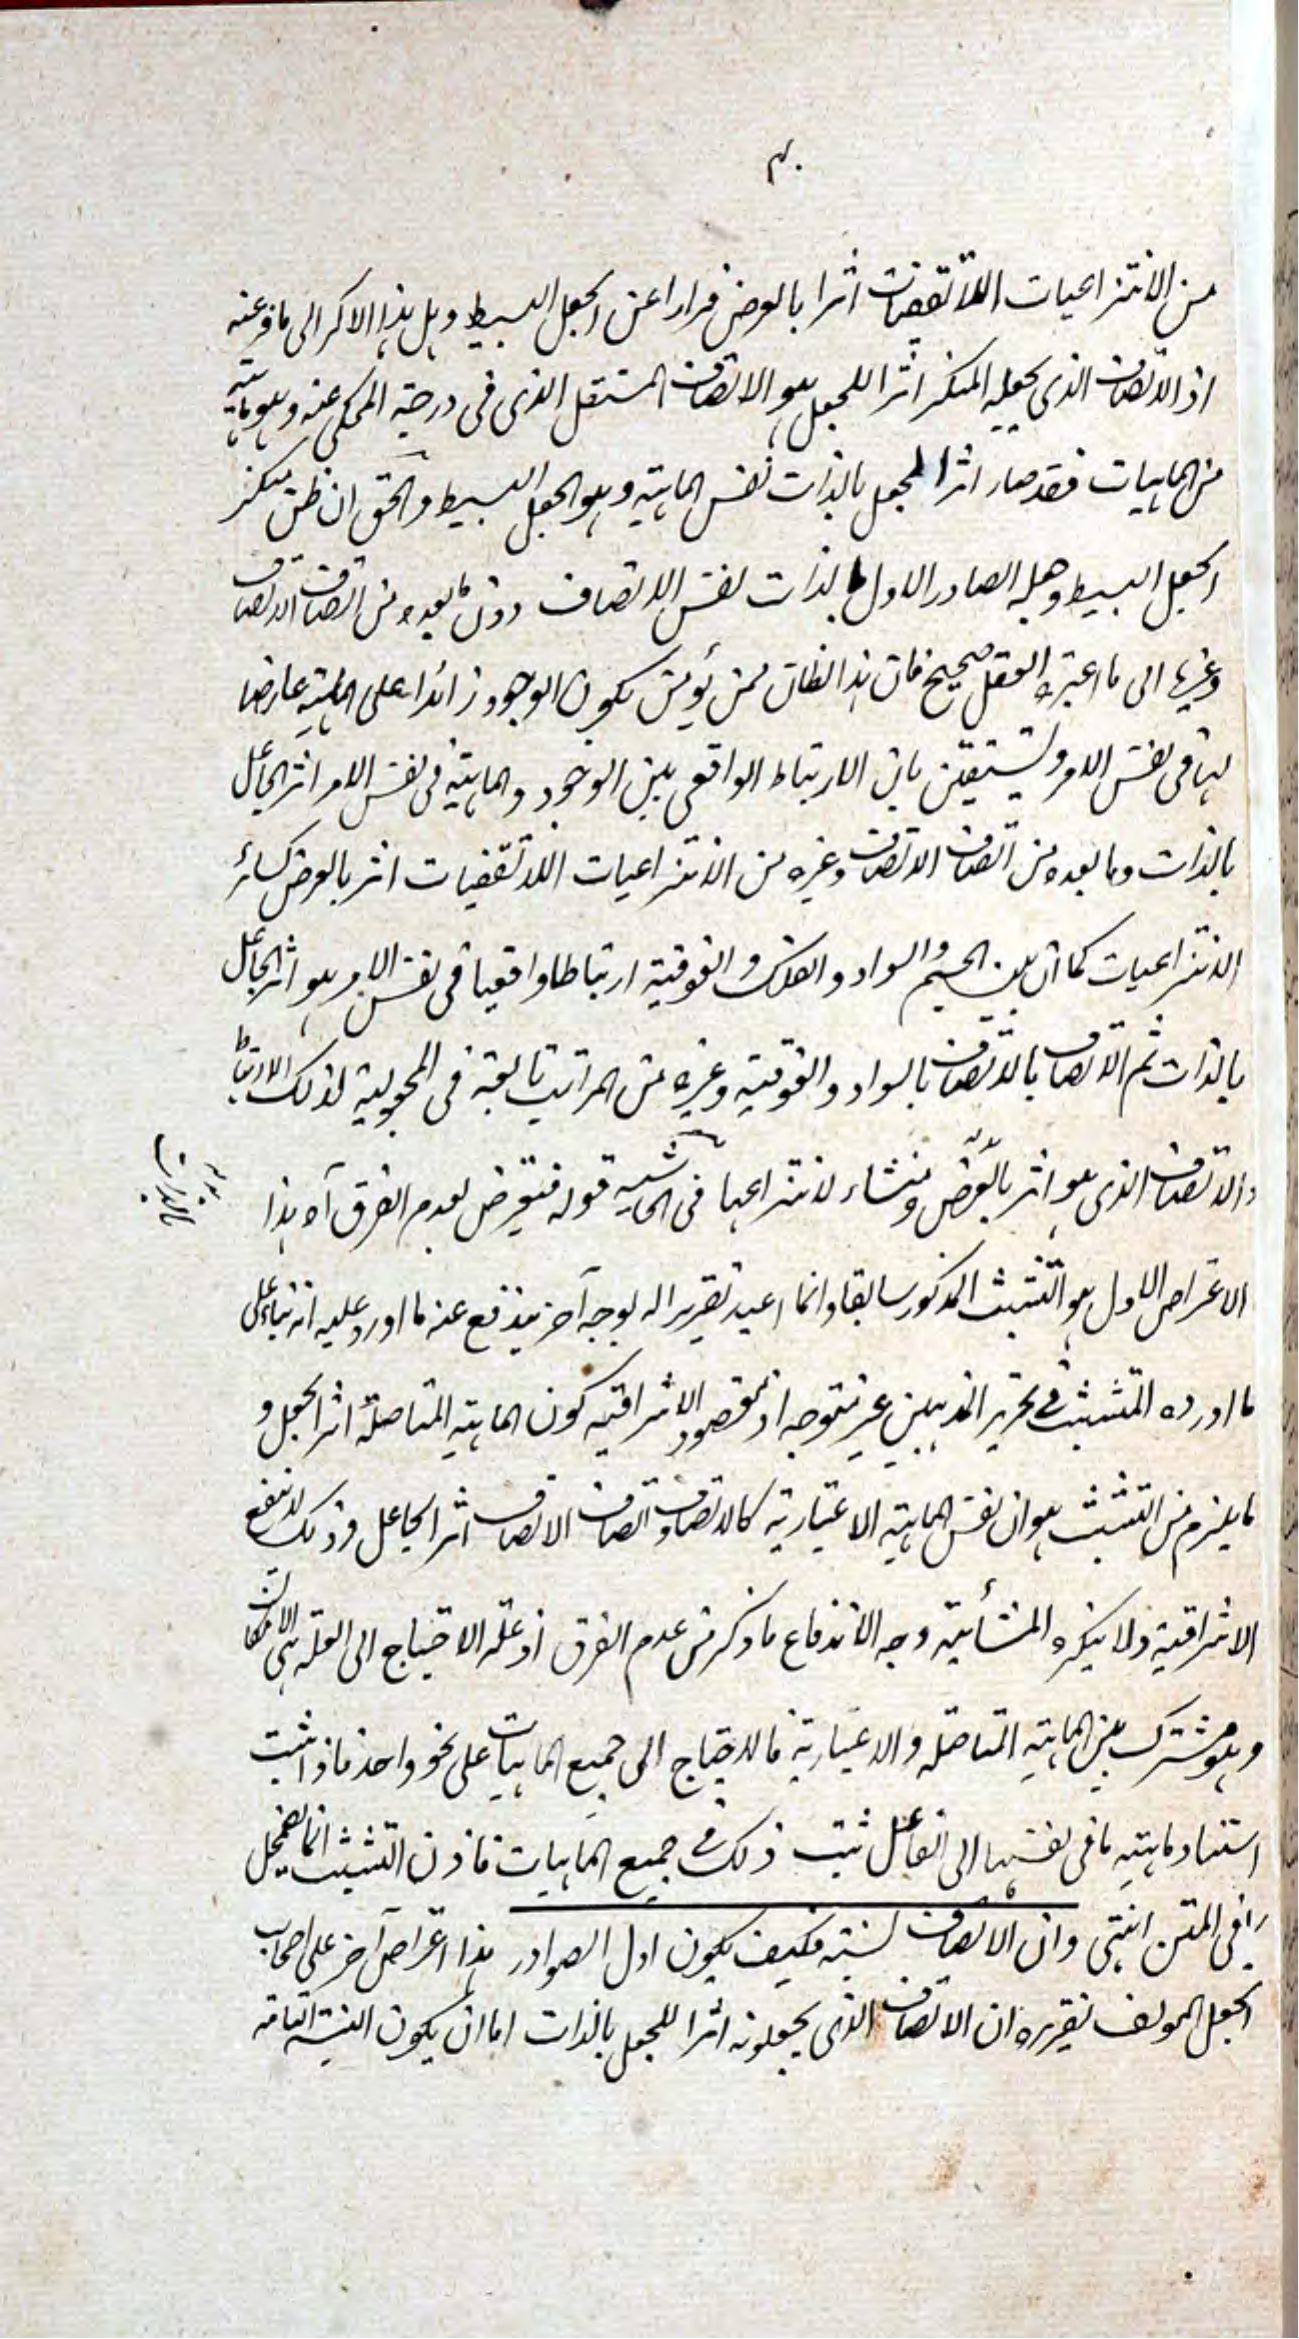 من الانتزاعيات اللاتقفيات اثرا بالعرض فرارا عن الجعل البسيط وهل هذا الا كر الى ما فر عنه
اذ الاتصاف الذى يجعله المنكر اثرا للجعل هو الاتصاف المستقل الذى فى درجة المحكى عنه وهو ماهية
من الماهيات فقد صار اثر الجعل بالذات نفس الماهية وهو الجعل البسيط والحق ان ظن منكر
الجعل البسيط وجعله الصادر الاول بالذات نفس الاتصاف دون ما بعده من اتصاف الاتصاف
وغيرها الى ما اعتبره العقل صحيح فان هذا الظان ممن يؤمن بكون الوجود زائدا على الماهية عارضا
لها فى نفس الامر ويستيقن بان الارتباط الواقعى بين الوجود والماهية فى نفس الامر اثر الجاعل
بالذات وما بعده من اتصاف الاتصاف وغيره من الانتزاعيات اللاتقفيات اثر بالعرض كسائر
الانتزاعيات كما ان بين الجسم والسواد والفلك والفوقية ارتباطا واقعيا فى نفس الامر وهو اثر الجاعل
بالذات ثم الاتصاف بالاتصاف بالسواد والفوقية وغيره من المراتب تابعة فى المجعولية لذلك الارتباط
والاتصاف الذى هو اثر بالعرض ومنشاء لانتزاعها فى الحاشية قوله فتعرض لعدم الفرق آه هذا
الاعتراض الاول هو التشبث المذكور سابقا وانما اعيد تقريرا له بوجه آخر يندفع عنه ما اورد عليه انه بناء على
ما اورده المتشبث فى تحرير المذهبين غير متوجه اذ مقصود الاشراقية كون الماهية المتاصلة اثر الجعل و
ما يلزم من التشبث هو ان نفس الماهية الاعتبارية كالاتصاف واتصاف الاتصاف اثر الجاعل وذلك لا ينفع
الاشراقية ولا ينكره المشائية وجه الاندفاع ما ذكر من عدم الفرق اذ علة الاحتياج الى العلة هى الامكان
وهو مشترك بين الماهية المتاصلة والاعتبارية فالاحتياج الى جميع الماهيات على نحو واحد فاذا ثبت
استناد ماهية ما فى نفسها الى الفاعل ثبت ذلك فى جميع الماهيات فاذن التشبث انما يضمحل
فى المتن انتهى وان الاتصاف نسبة فكيف يكون اول الصوادر هذا اعتراض آخر على اصحاب
الجعل المولف تقريره ان الاتصاف الذى يجعلونه اثرا للجعل بالذات اما ان يكون النسبة التامة